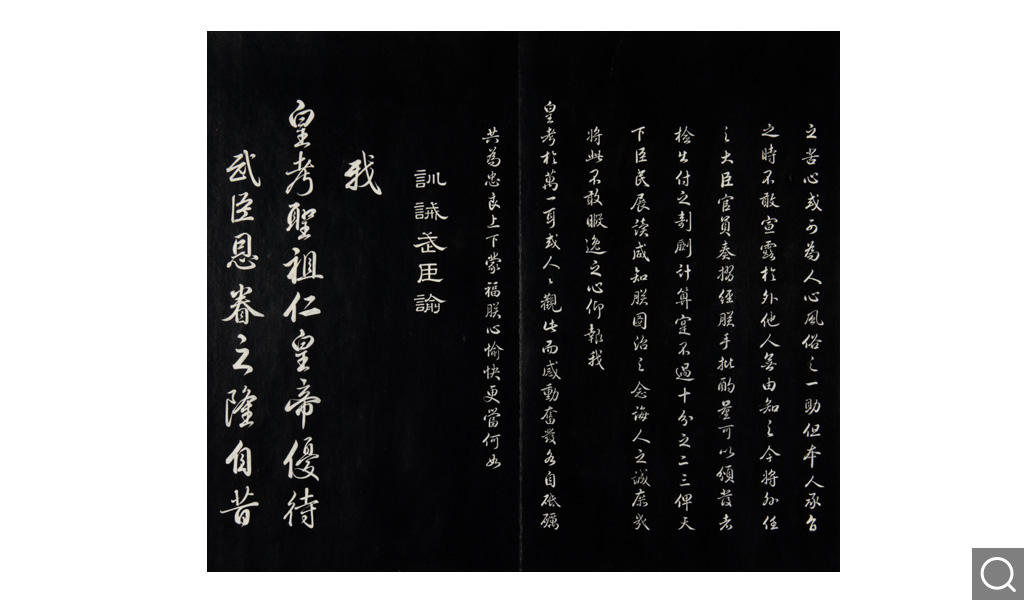 立苦心或可為人心風俗之一助但本人承旨
之時不敢宣露於外他人無由知之今將外任
之大臣官員奏摺經朕手批酌量可以頒發者
檢出付之剞劂計算寔不過十分之二三俾天
下臣民展讀咸知朕圖治之念誨人之誠庶幾
將此不敢暇逸之心仰報我
皇考於萬一耳或人人觀此而感動奮發各自砥礪
共為忠良上下蒙福朕心愉快更當何如
訓誡武臣諭
我
皇考聖祖仁皇帝優待
武臣恩眷之隆自昔